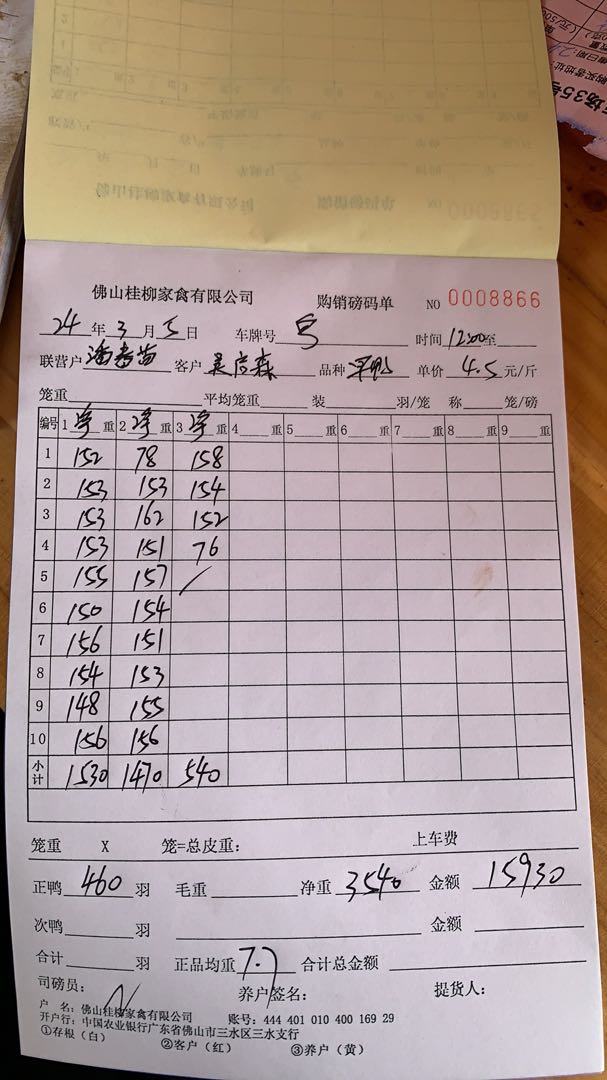 佛山桂柳家禽有限公司 购销磅码单 NO 0008866
24年3月5日 车牌号 时间 12:00至
联营户 客户 吴启森 品种 单价 4.5 元/斤
笼重 平均笼重 装 羽/笼 称 笼/磅
编号 1 净 重 2 净 重 3 净 重 4 重 5 重 6 重 7 重 8 重 9 重
1 152 78 158
2 153 153 154
3 153 162 152
4 153 151 76
5 155 157 /
6 150 154
7 156 151
8 154 153
9 148 155
10 156 156
小计 1530 1470 540
笼重 X 笼=总皮重: 上车费
正鸭 460 羽 毛重 净重 3540 金额 15930
次鸭 羽 金额
合计 羽 正品均重 7.7 合计总金额
司磅员: 养户签名: 提货人:
户 名: 佛山桂柳家禽有限公司 账号: 444 401 010 400 169 29
开户行: 中国农业银行广东省佛山市三水区三水支行
①存根(白) ②客户(红) ③养户(黄)